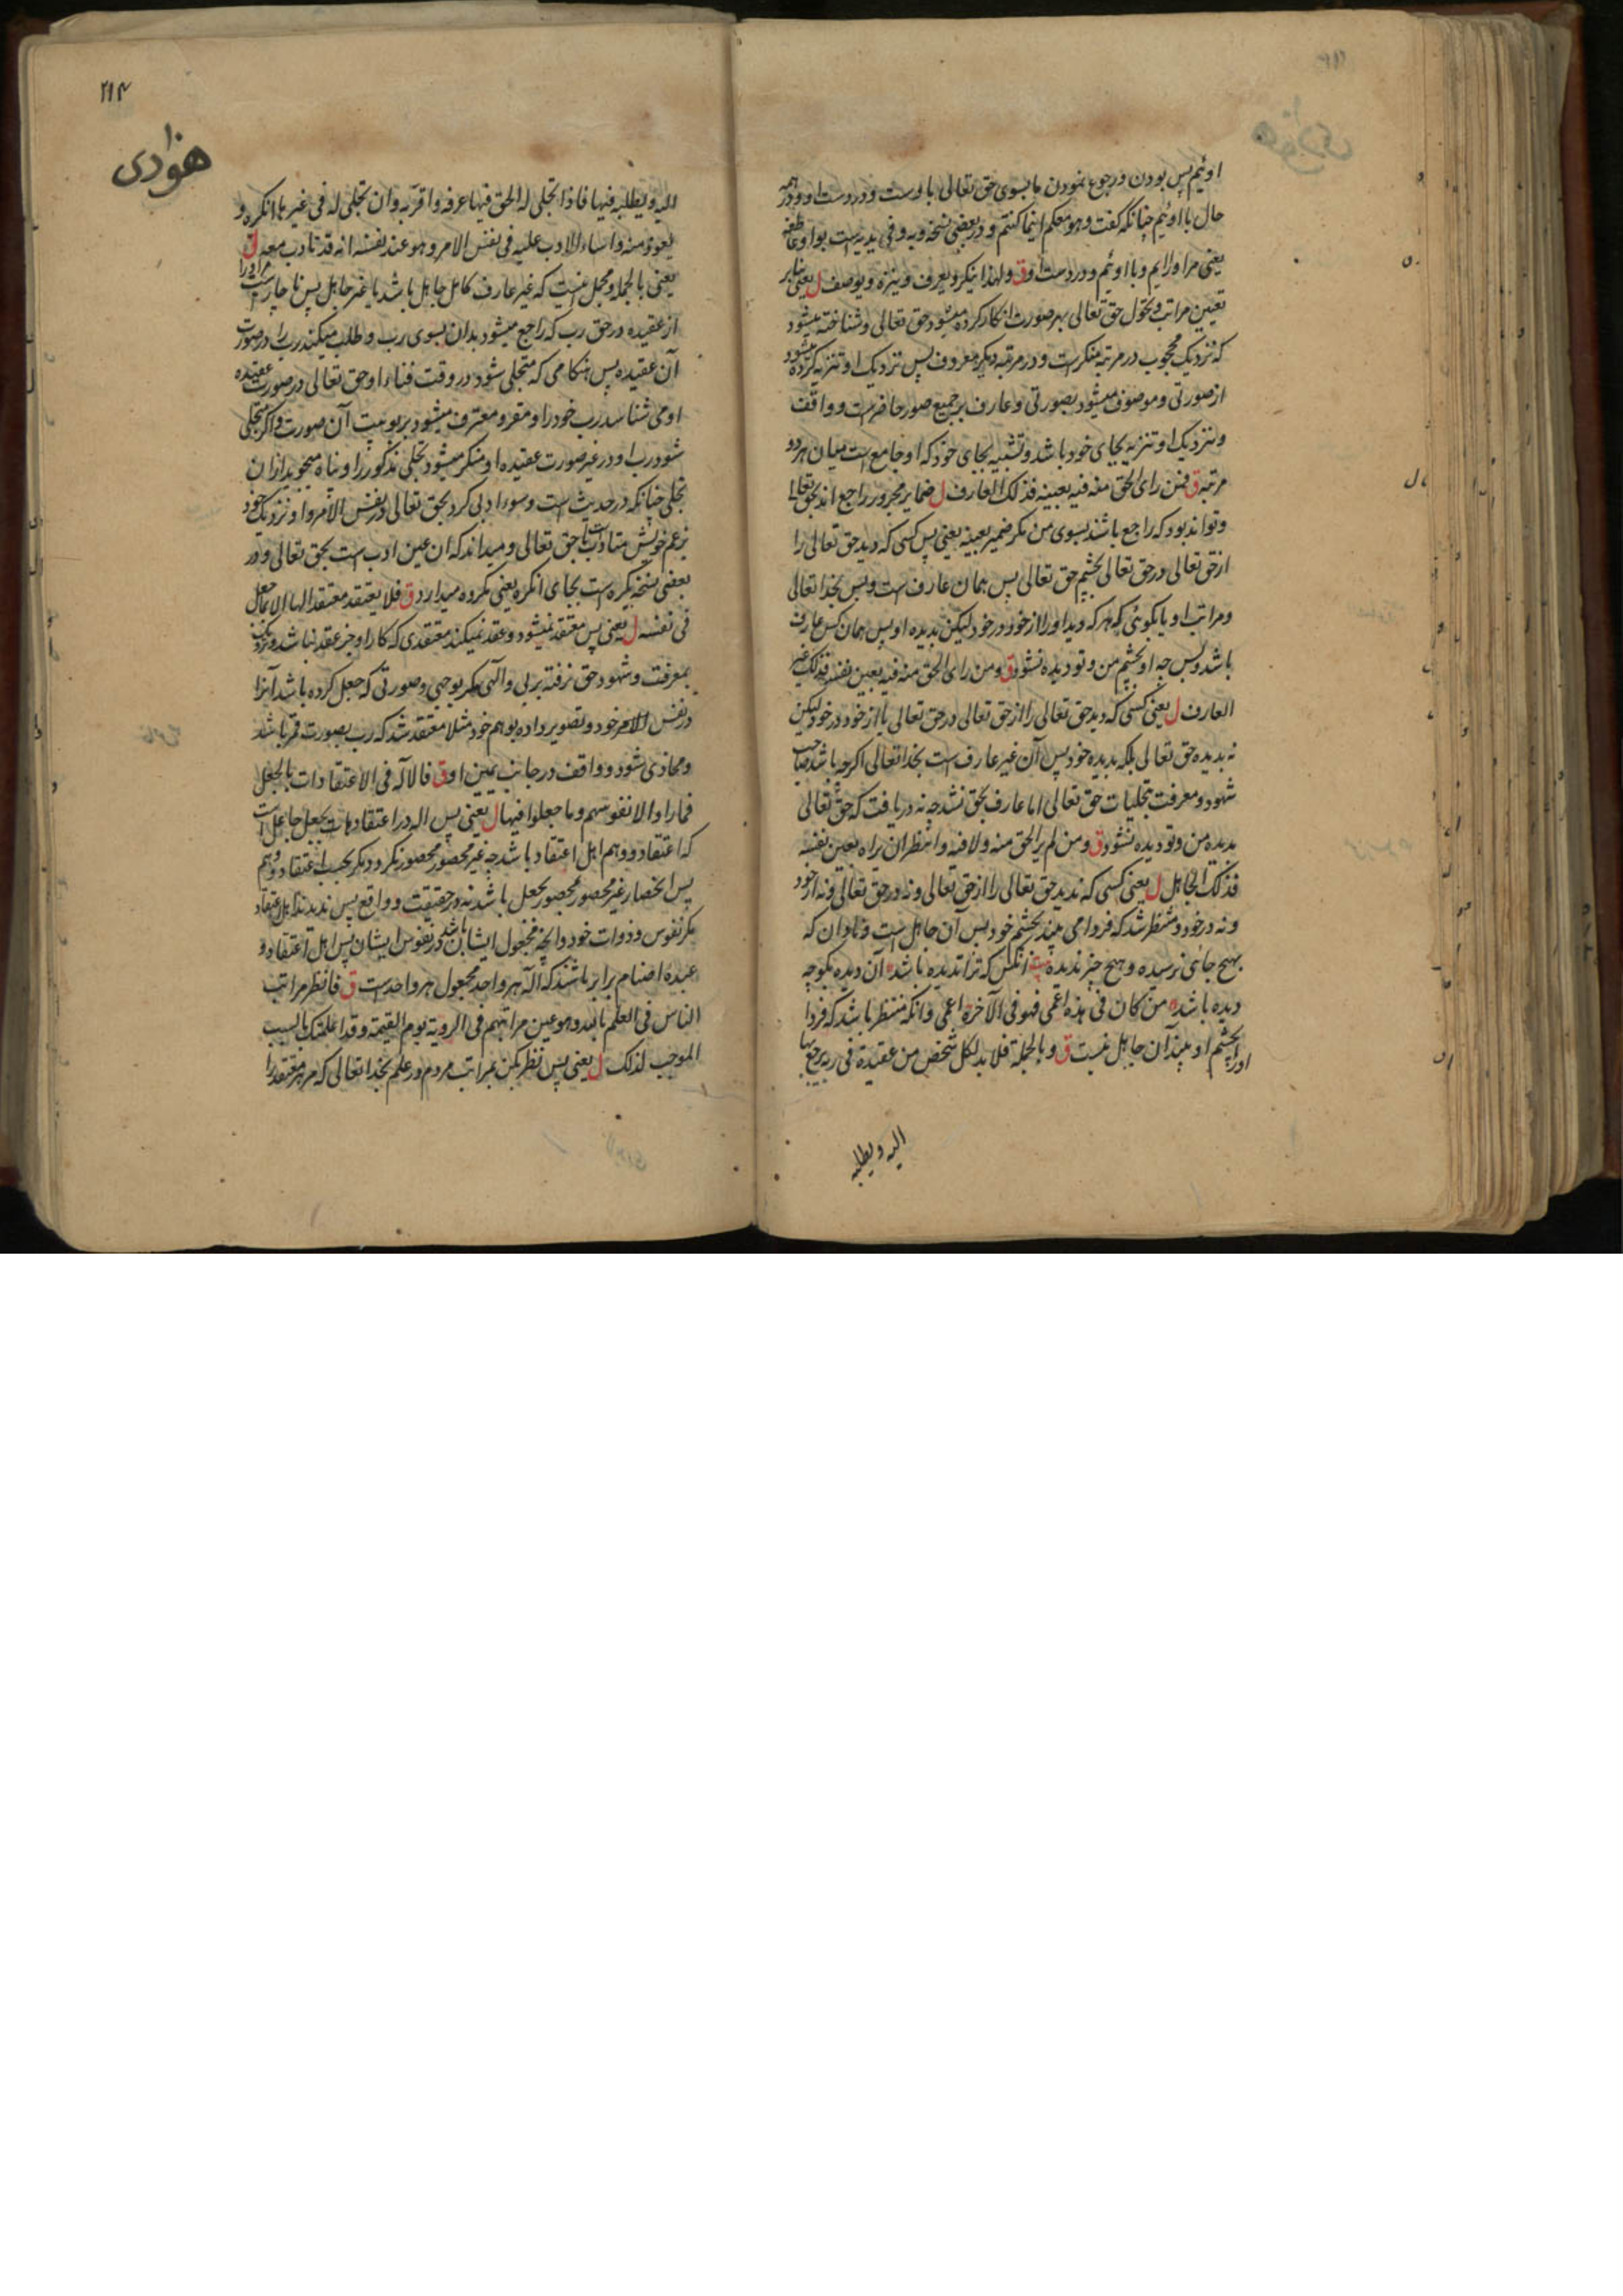 اوئیم پس بودن و رجوع نمودن ما بسوی حق تعالی باوست و در دست او و در همه
حال با اوئیم چنانکه گفت و هو معکم اینما کنتم و در بعضی نسخه وبه و فی یدیه است بواو عاطفه
یعنی مر او رایم و با اوئیم و در دست او ق ولهذا ینکر و یعرف و ینزه و یوصف ل یعنی بنابر
تعین مراتب و تحول حق تعالی بهر صورت انکار کرده میشود حق تعالی و شناخته میشود
که نزدیک محجوب در مرتبه منکرست و در مرتبه دیکر معروف پس نزدیک او تنزیه کرده میشود
از صورتی و موصوف میشود بصورتی و عارف بر جمیع صور حاضرست و واقف
و نزدیک او تنزیه بجای خود باشد و تشبیه بجای خود که او جامع است میان هر دو
مرتبه ق فمن رای الحق منه فیه بعینه فذلک العارف ل ضمایر مجرور راجع اند بحق تعالی
و تواند بود که راجع باشند بسوی من مکر ضمیر بعینه یعنی پس کسی که دید حق تعالی را
از حق تعالی در حق تعالی بچشم حق تعالی پس همان عارف ست و بس بخدا تعالی
و مراتب او یا بکوئی که هر که دید او را از خود در خود لیکن بدیده او پس همان کس عارف
باشد و بس چه او بچشم من و تو دیده نشود ق و من رای الحق منه فیه بعین نفسه فذلک غیر
العارف ل یعنی کسی که دید حق تعالی را از حق تعالی در حق تعالی یا از خود در خود لیکن
نه بدیده حق تعالی بلکه بدیده خود پس آن غیر عارف ست بخدا تعالی اکرچه باشد صاحب
شهود و معرفت تجلیات حق تعالی اما عارف بحق نشد چه نه دریافت که حق تعالی
بدیده من و تو دیده نشود ق و من لم یر الحق منه ولا فیه وانتظر ان یراه بعین نفسه
فذلک الجاهل ل یعنی کسی که ندید حق تعالی را از حق تعالی و نه در حق تعالی و نه از خود
و نه در خود و منتظر شد که فردا می بیند بچشم خود پس آن جاهل است و نادان که
بهیچ جائی نرسیده و هیچ چیز ندیده بیت آنکس که ترا ندیده باشد آن دیده بکوچه
دیده باشد من کان فی هذه اعمی فهو فی الآخرة اعمی و آنکه منتظر باشد که فردا
او را بچشم او بیند آن جاهل نیست ق و بالجملة فلابد لکل شخص من عقیدة فی ربه یرجع بها
الیه و یطلبه
۲۱۴
هؤادی
الیه و یطلبه فیها فاذا تجلی له الحق فیها عرفه و اقر به وان تجلی له فی غیرها انکره و
یعوذ منه و اساء الادب علیه فی نفس الامر و هو عند نفسه انه قد تادب معه ل
یعنی بالجمله و مجمل اینست که غیر عارف کامل جاهل باشد یا غیر جاهل پس ناچارست مر او را
از عقیده در حق رب که راجع میشود بدان بسوی رب و طلب میکند رب را در صورت
آن عقیده پس هنکامی که متجلی شود در وقت فناء او حق تعالی در صورت عقیده
او می شناسد رب خود را و مقر و معترف میشود بربوبیت آن صورت و اکر متجلی
شود رب او در غیر صورت عقیده او منکر میشود تجلی مذکور را و پناه میجوید ازان
تجلی چنانکه در حدیث است و سوء ادبی کرد بحق تعالی در نفس الامر و او نزدیک خود
بزعم خویش متادب است با حق تعالی و میداند که ان عین ادب است بحق تعالی و در
بعضی نسخه یکره است بجای انکره یعنی مکروه میدارد ق فلا یعتقد معتقد الها الا بما جعل
فی نفسه ل یعنی پس معتقد نمیشود و عقد نمیکند معتقدی که کار او جز عقد نباشد و
بمعرفت و شهود حق نرفته بر بی و الهی مکر بوجهی و صورتی که جعل کرده باشد آنرا
در نفس الامر خود و تصویر داده بوهم خود مثلا معتقد شد که رب بصورت قمر باشد
و محاذی شود و واقف در جانب یمین او ق فالاله فی الاعتقادات بالجعل
فما راوا الا نفوسهم وما جعلوا فیها ل یعنی پس اله در اعتقادها بجعل جاعل است
که اعتقاد و وهم اهل اعتقاد باشد چه غیر محصور محصور نکردد مکر بحسب اعتقاد و وهم
پس انحصار غیر محصور محصور بجعل باشد نه در حقیقت و واقع پس ندیدند اهل اعتقاد
مکر نفوس و ذوات خود و آنچه مجعول ایشان باشد در نفوس ایشان پس اهل اعتقاد و
عبدهٔ اصنام برابر باشند که آله هر واحد مجعول هر واحدست ق فانظر مراتب
الناس فی العلم بالله و هو عین مراتبهم فی الرویة یوم القیمة و قد اعلمتک بالسبب
الموجب لذلک ل یعنی پس نظر بکن بمراتب مردم در علم بخدا تعالی که مر هر معتقد را